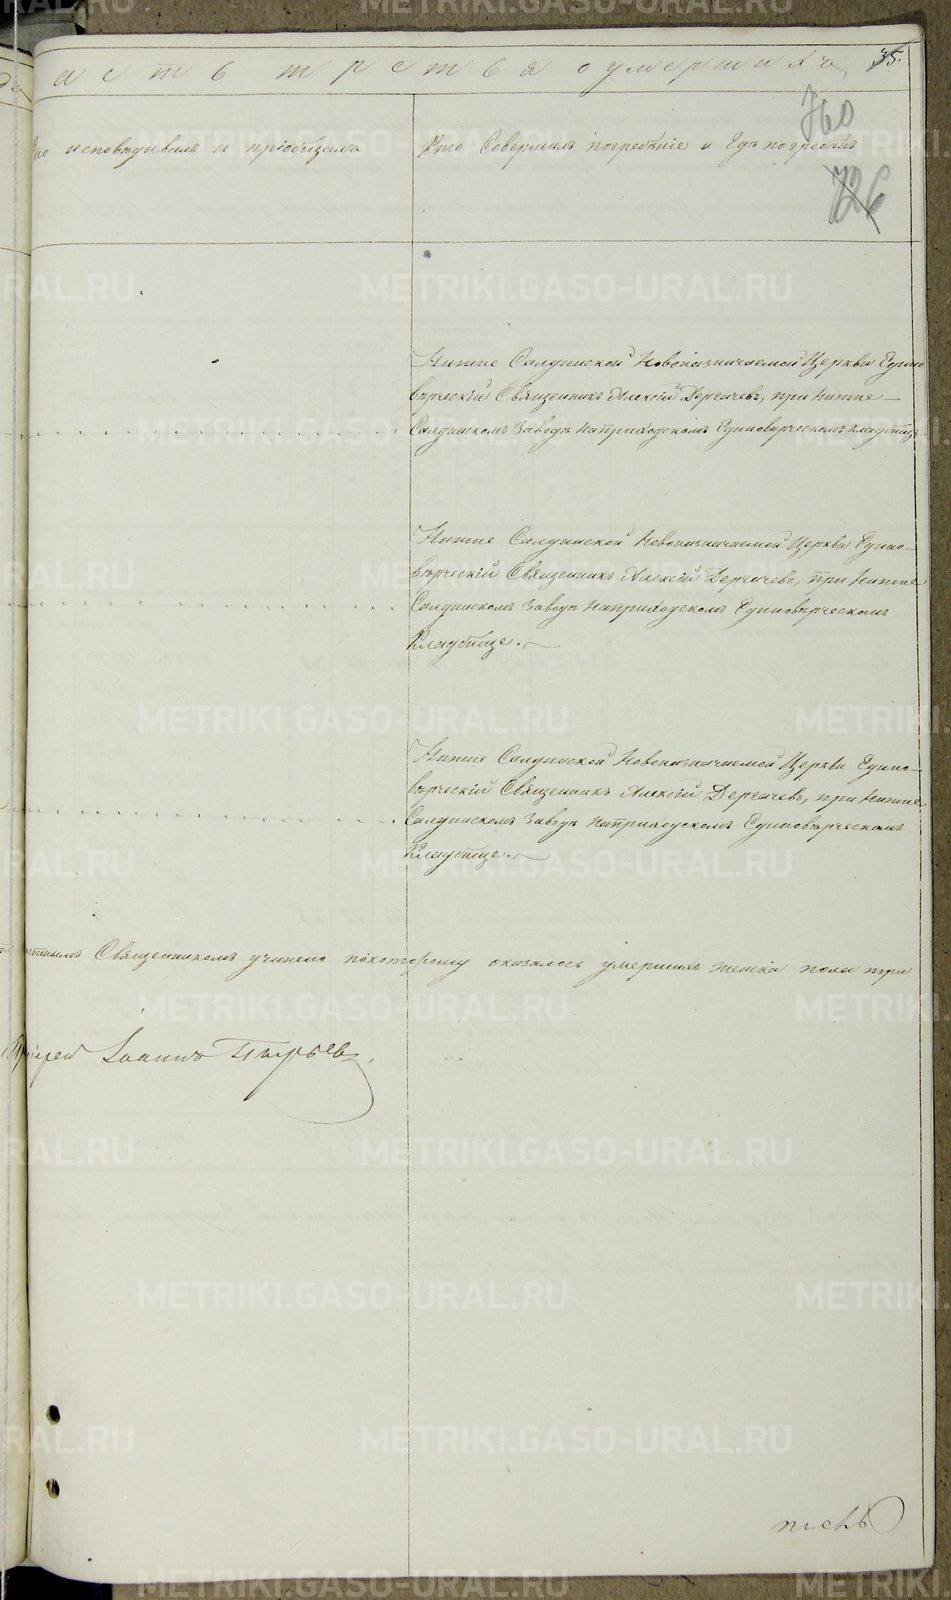 асть третья о умершихъ 35.
760
Кто исповѣдывалъ и пріобщалъ
Кто Совершилъ погребѣніе и Гдѣ погребѣн
726
Нижне Салдинской Новоназначаемой Церкви Едино
вѣрческій Священникъ Алексій Дерячевъ, при Нижне
Салдинскомъ Заводѣ На приходскомъ Единовѣрческомъ кладбищѣ
Нижне Салдинской Новоназначаемой Церкви Едино-
вѣрческій Священникъ Алексій Дерячевъ, при Нижне
Салдинскомъ Заводѣ На приходскомъ Единовѣрческомъ
Кладбище.
Нижне Салдинской Новоназначаемой Церкви Едино-
вѣрческій Священникъ Алексій Дерячевъ, при Нижне
Салдинскомъ Заводѣ На приходскомъ Единовѣрческомъ
Кладбище.
Священникомъ учинено покоторому оказалось умершихъ женска пола три
Іоаннъ
METRIKI.GASO-URAL.RU